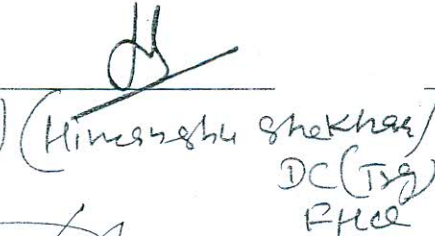 ) (Himangshu Shekhar)
DC (Trg)
FHQ